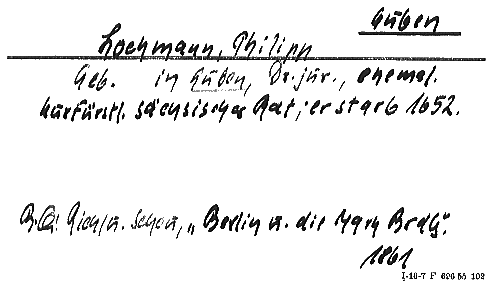 Guben
Lochmann, Philipp
Geb. in Guben, Dr. jur., ehemal.
kurfürstl. sächsischer Rat; er starb 1652.
"Berlin u. die Mark Brdbg."
1861
I-10-7 F 626 55 102